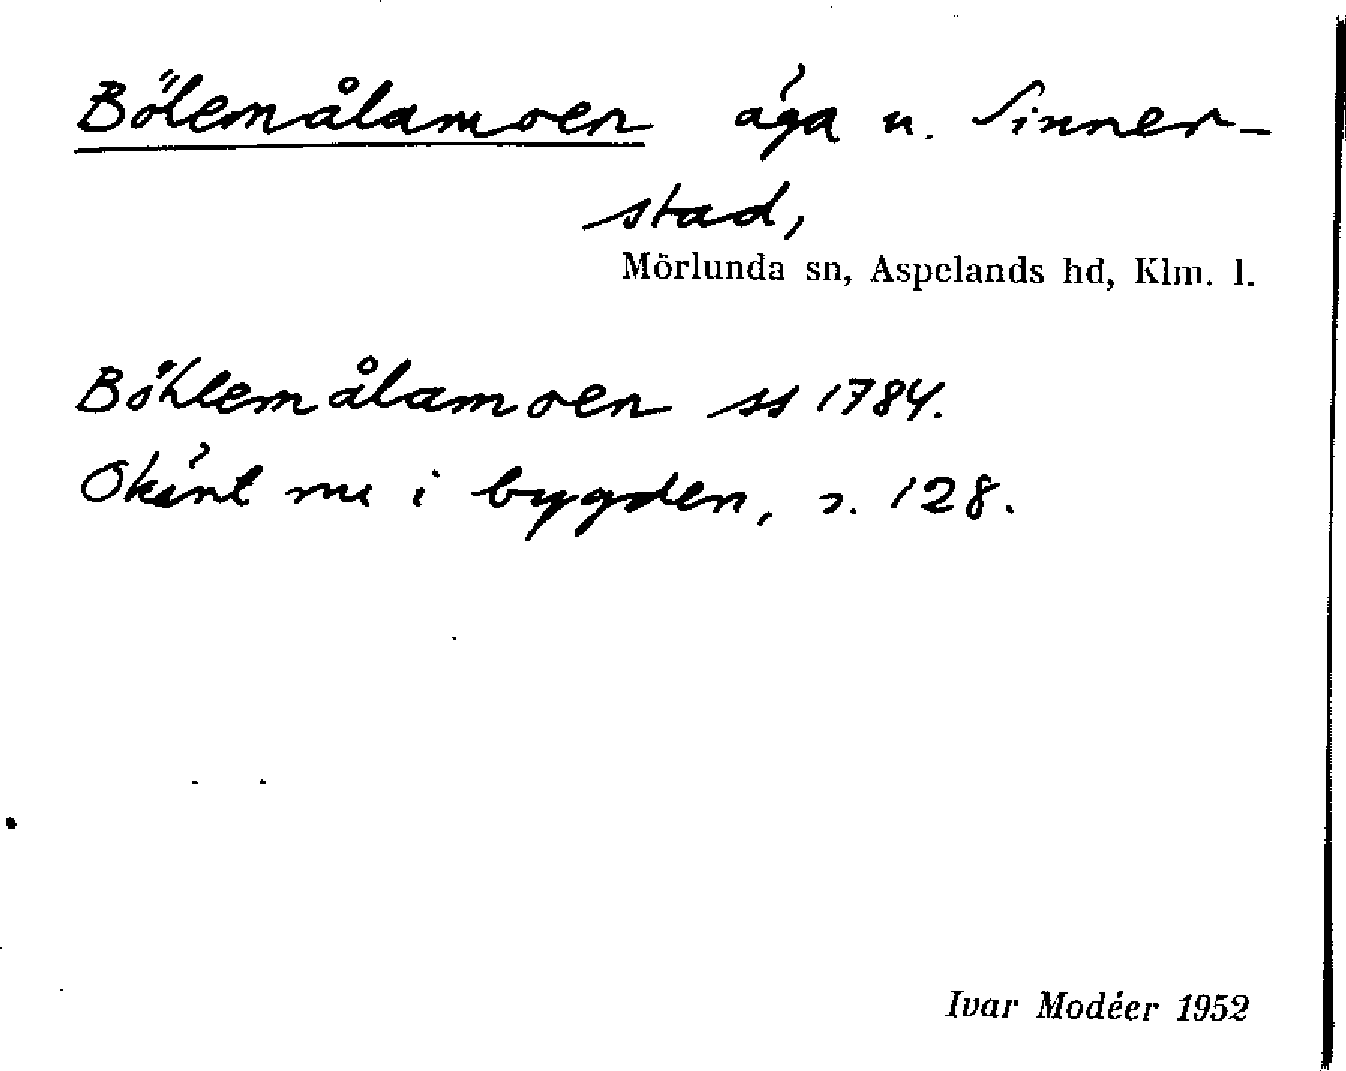 Bölemålamoen äga u. Sinner-
stad,
Mörlunda sn, Aspelands hd, Klm. l.
Böhlemålamoen ss 1784.
Okänt nu i bygden, s. 128.
Ivar Modéer 1952